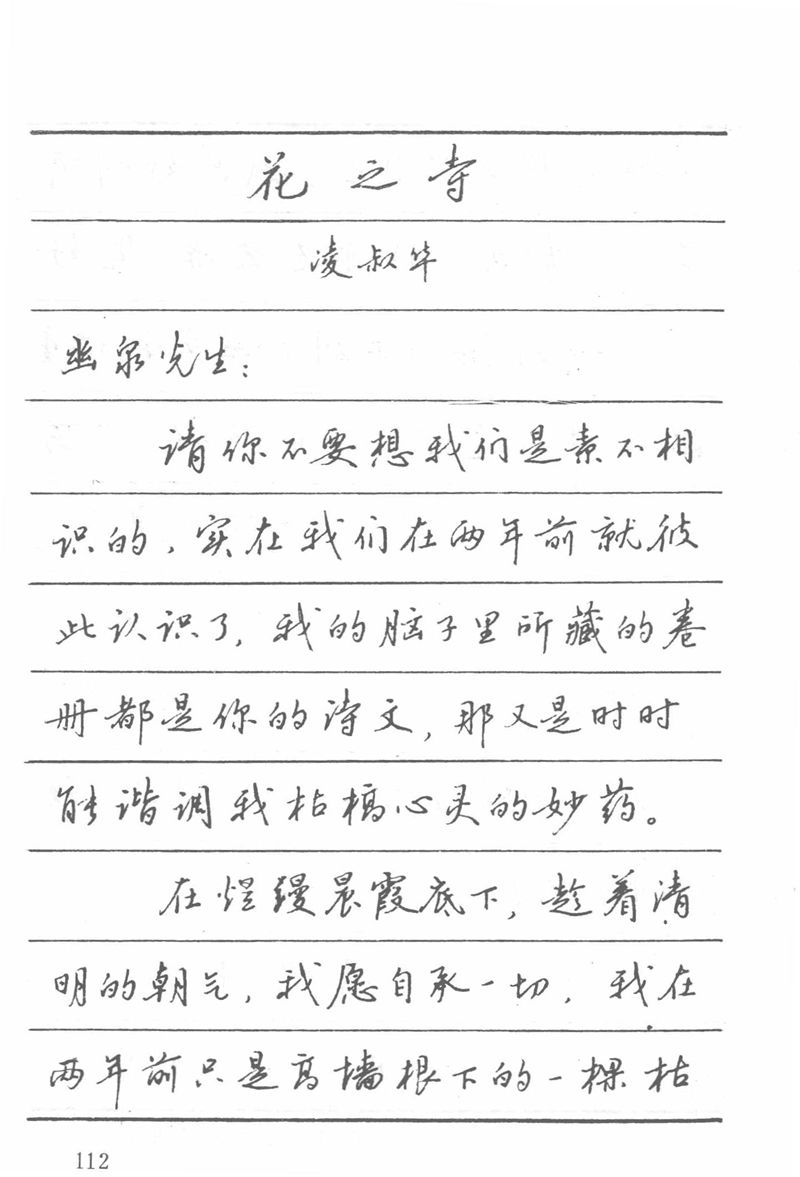 花之寺
凌叔华
幽泉先生：
请你不要想我们是素不相
识的，实在我们在两年前就彼
此认识了，我的脑子里所藏的卷
册都是你的诗文，那又是时时
能谐调我枯槁心灵的妙药。
在烂缦晨霞底下，趁着清
明的朝气，我愿自承一切，我在
两年前只是高墙根下的一棵枯
112